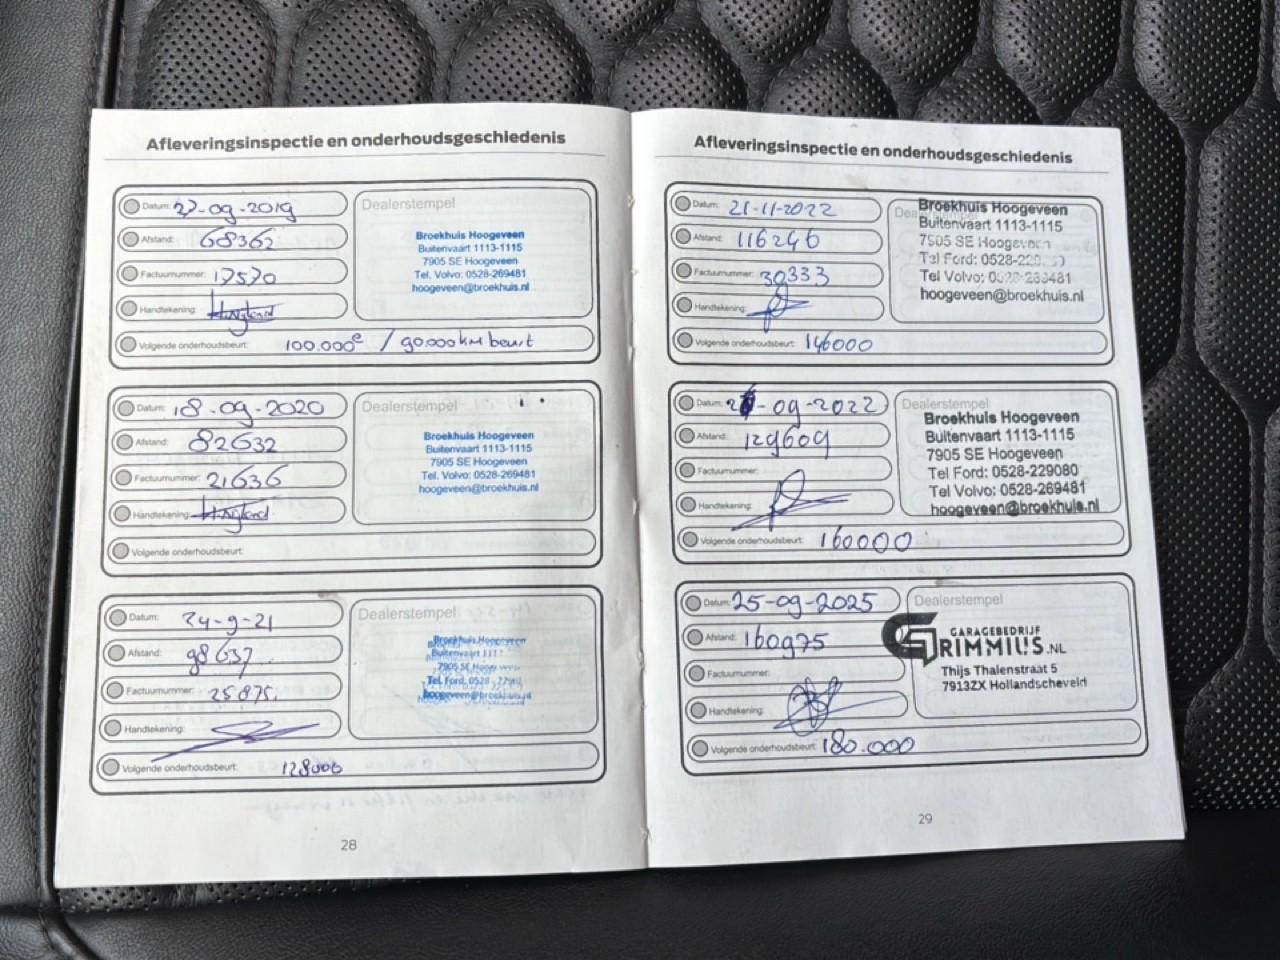 Afleveringsinspectie en onderhoudsgeschiedenis
Datum: 27-09-2019
Afstand: 68362
Factuurnummer: 17570
Handtekening:
Volgende onderhoudsbeurt: 100.000e / 90.000km beurt
Dealerstempel
Broekhuis Hoogeveen
Buitenvaart 1113-1115
7905 SE Hoogeveen
Tel. Volvo: 0528-269481
hoogeveen@broekhuis.nl
Datum: 18-09-2020
Afstand: 82632
Factuurnummer: 21636
Handtekening:
Volgende onderhoudsbeurt:
Dealerstempel
Broekhuis Hoogeveen
Buitenvaart 1113-1115
7905 SE Hoogeveen
Tel. Volvo: 0528-269481
hoogeveen@broekhuis.nl
Datum: 24-9-21
Afstand: 98637
Factuurnummer: 25875.
Handtekening:
Volgende onderhoudsbeurt: 128000
Dealerstempel
Broekhuis Hoogeveen
Buitenvaart
7905 SE
Tel. Ford: 0528
28
Afleveringsinspectie en onderhoudsgeschiedenis
Datum: 21-11-2022
Afstand: 116246
Factuurnummer: 30333
Handtekening:
Volgende onderhoudsbeurt: 146000
Broekhuis Hoogeveen
Buitenvaart 1113-1115
7905 SE Hoogeveen
Tel Ford: 0528-
Tel Volvo: 0528-269481
hoogeveen@broekhuis.nl
Datum: -09-2022
Afstand: 129609
Factuurnummer:
Handtekening:
Volgende onderhoudsbeurt: 160000
Dealerstempel
Broekhuis Hoogeveen
Buitenvaart 1113-1115
7905 SE Hoogeveen
Tel Ford: 0528-229080
Tel Volvo: 0528-269481
hoogeveen@broekhuis.nl
Datum: 25-09-2025
Afstand: 160975
Factuurnummer:
Handtekening:
Volgende onderhoudsbeurt: 180.000
Dealerstempel
GARAGEBEDRIJF
GRIMMIUS.NL
Thijs Thalenstraat 5
7913ZX Hollandscheveld
29